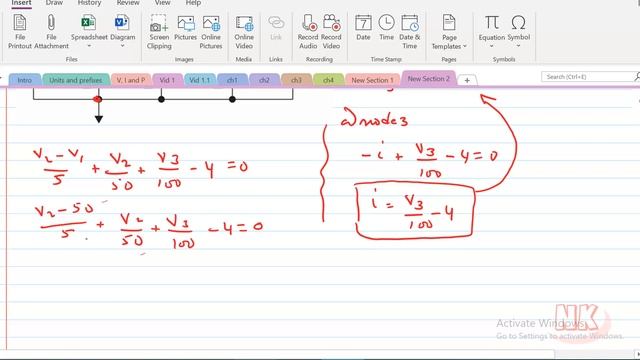 Insert Draw History Review View Help
File Printout File Attachment Spreadsheet Diagram Screen Clipping Pictures Online Pictures Link Record Audio Record Video Date Time Date & Time Page Templates Equation Symbol
Files Images Links Recording Time Stamp Pages Symbols
Intro Units and prefixes V, I and P Vid 1 Vid 1.1 ch1 ch2 ch3 ch4 New Section 1 New Section 2 + Search (Ctrl+E)
a) node 3
(V2 - V1)/5 + V2/50 + V3/100 - 4 = 0
-i + V3/100 - 4 = 0
(V2 - 50)/5 + V2/50 + V3/100 - 4 = 0
i = V3/100 - 4
NK
Activate Windows
Go to Settings to activate Windows.